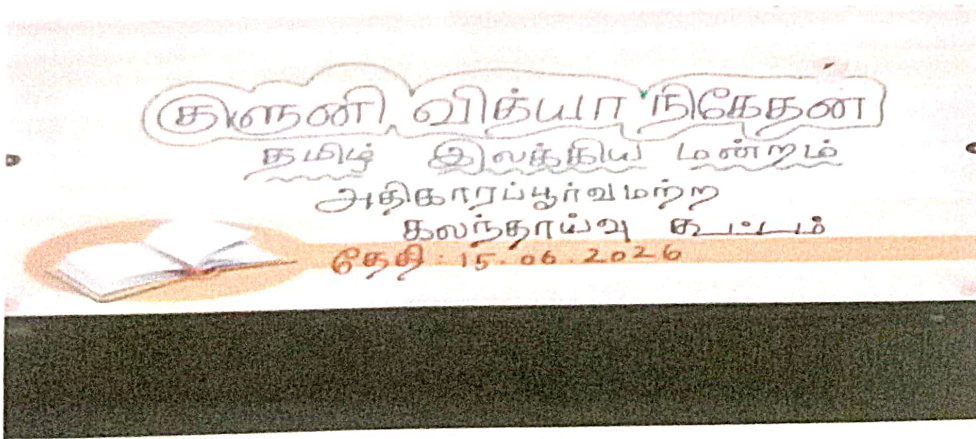 குளுனி வித்யா நிகேதன்
தமிழ் இலக்கிய மன்றம்
அதிகாரப்பூர்வமற்ற
கலந்தாய்வு கூட்டம்
தேதி : 15.06.2026